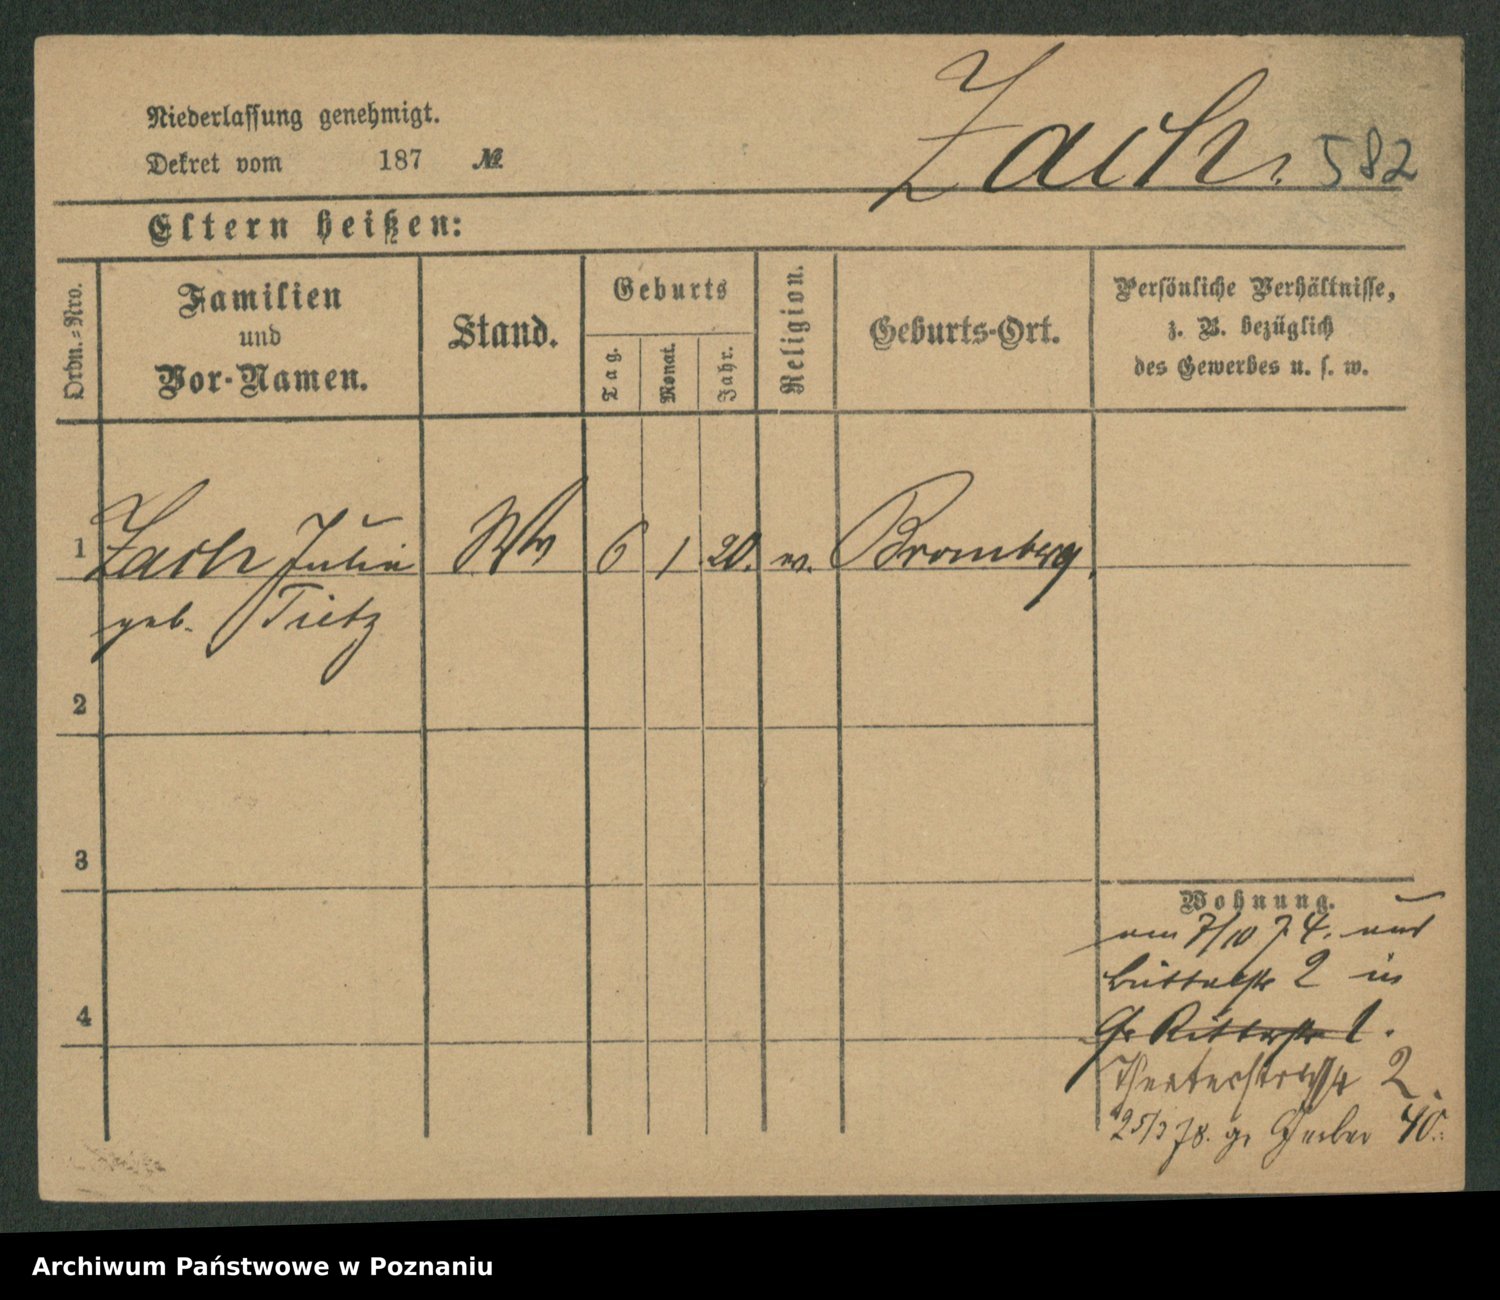 Niederlassung genehmigt.
Dekret vom 187 №
Zach. 582
Eltern heißen:
Ordn.-Nro.
Familien
und
Vor-Namen.
Stand.
Geburts
Tag.
Monat.
Jahr.
Religion.
Geburts-Ort.
Persönliche Verhältnisse,
z. B. bezüglich
des Gewerbes u. s. w.
1 Zach Julie Ww 6 1 20. Bromberg.
geb. Tietz
2
3
4
Wohnung.
7/10 74. aus
Büttelstr 2 in
Gr Ritterstr 1.
Theaterstraße 2
25/3 78. gr Gerber 40.
Archiwum Państwowe w Poznaniu